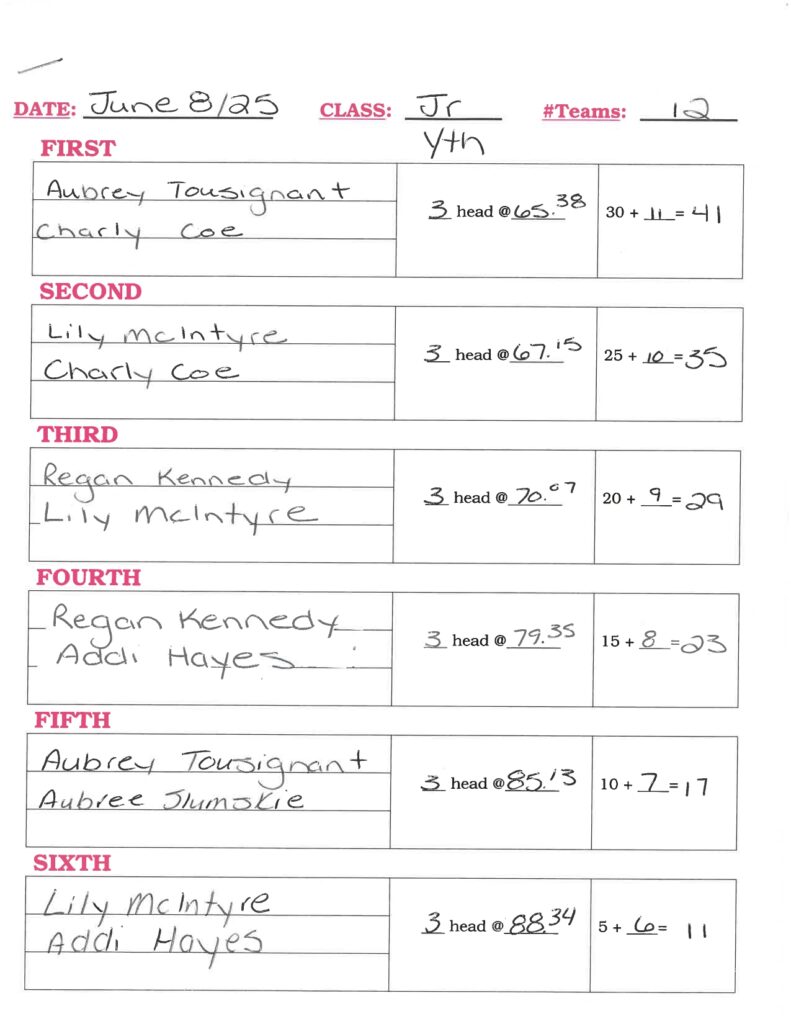 DATE: June 8/25 CLASS: Jr #Teams: 12
Yth
FIRST
Aubrey Tousignant
Charly Coe
3 head @ 65.38
30 + 11 = 41
SECOND
Lily McIntyre
Charly Coe
3 head @ 67.15
25 + 10 = 35
THIRD
Regan Kennedy
Lily McIntyre
3 head @ 70.07
20 + 9 = 29
FOURTH
Regan Kennedy
Addi Hayes
3 head @ 79.35
15 + 8 = 23
FIFTH
Aubrey Tousignant
Aubree Slumskie
3 head @ 85.13
10 + 7 = 17
SIXTH
Lily McIntyre
Addi Hayes
3 head @ 88.34
5 + 6 = 11